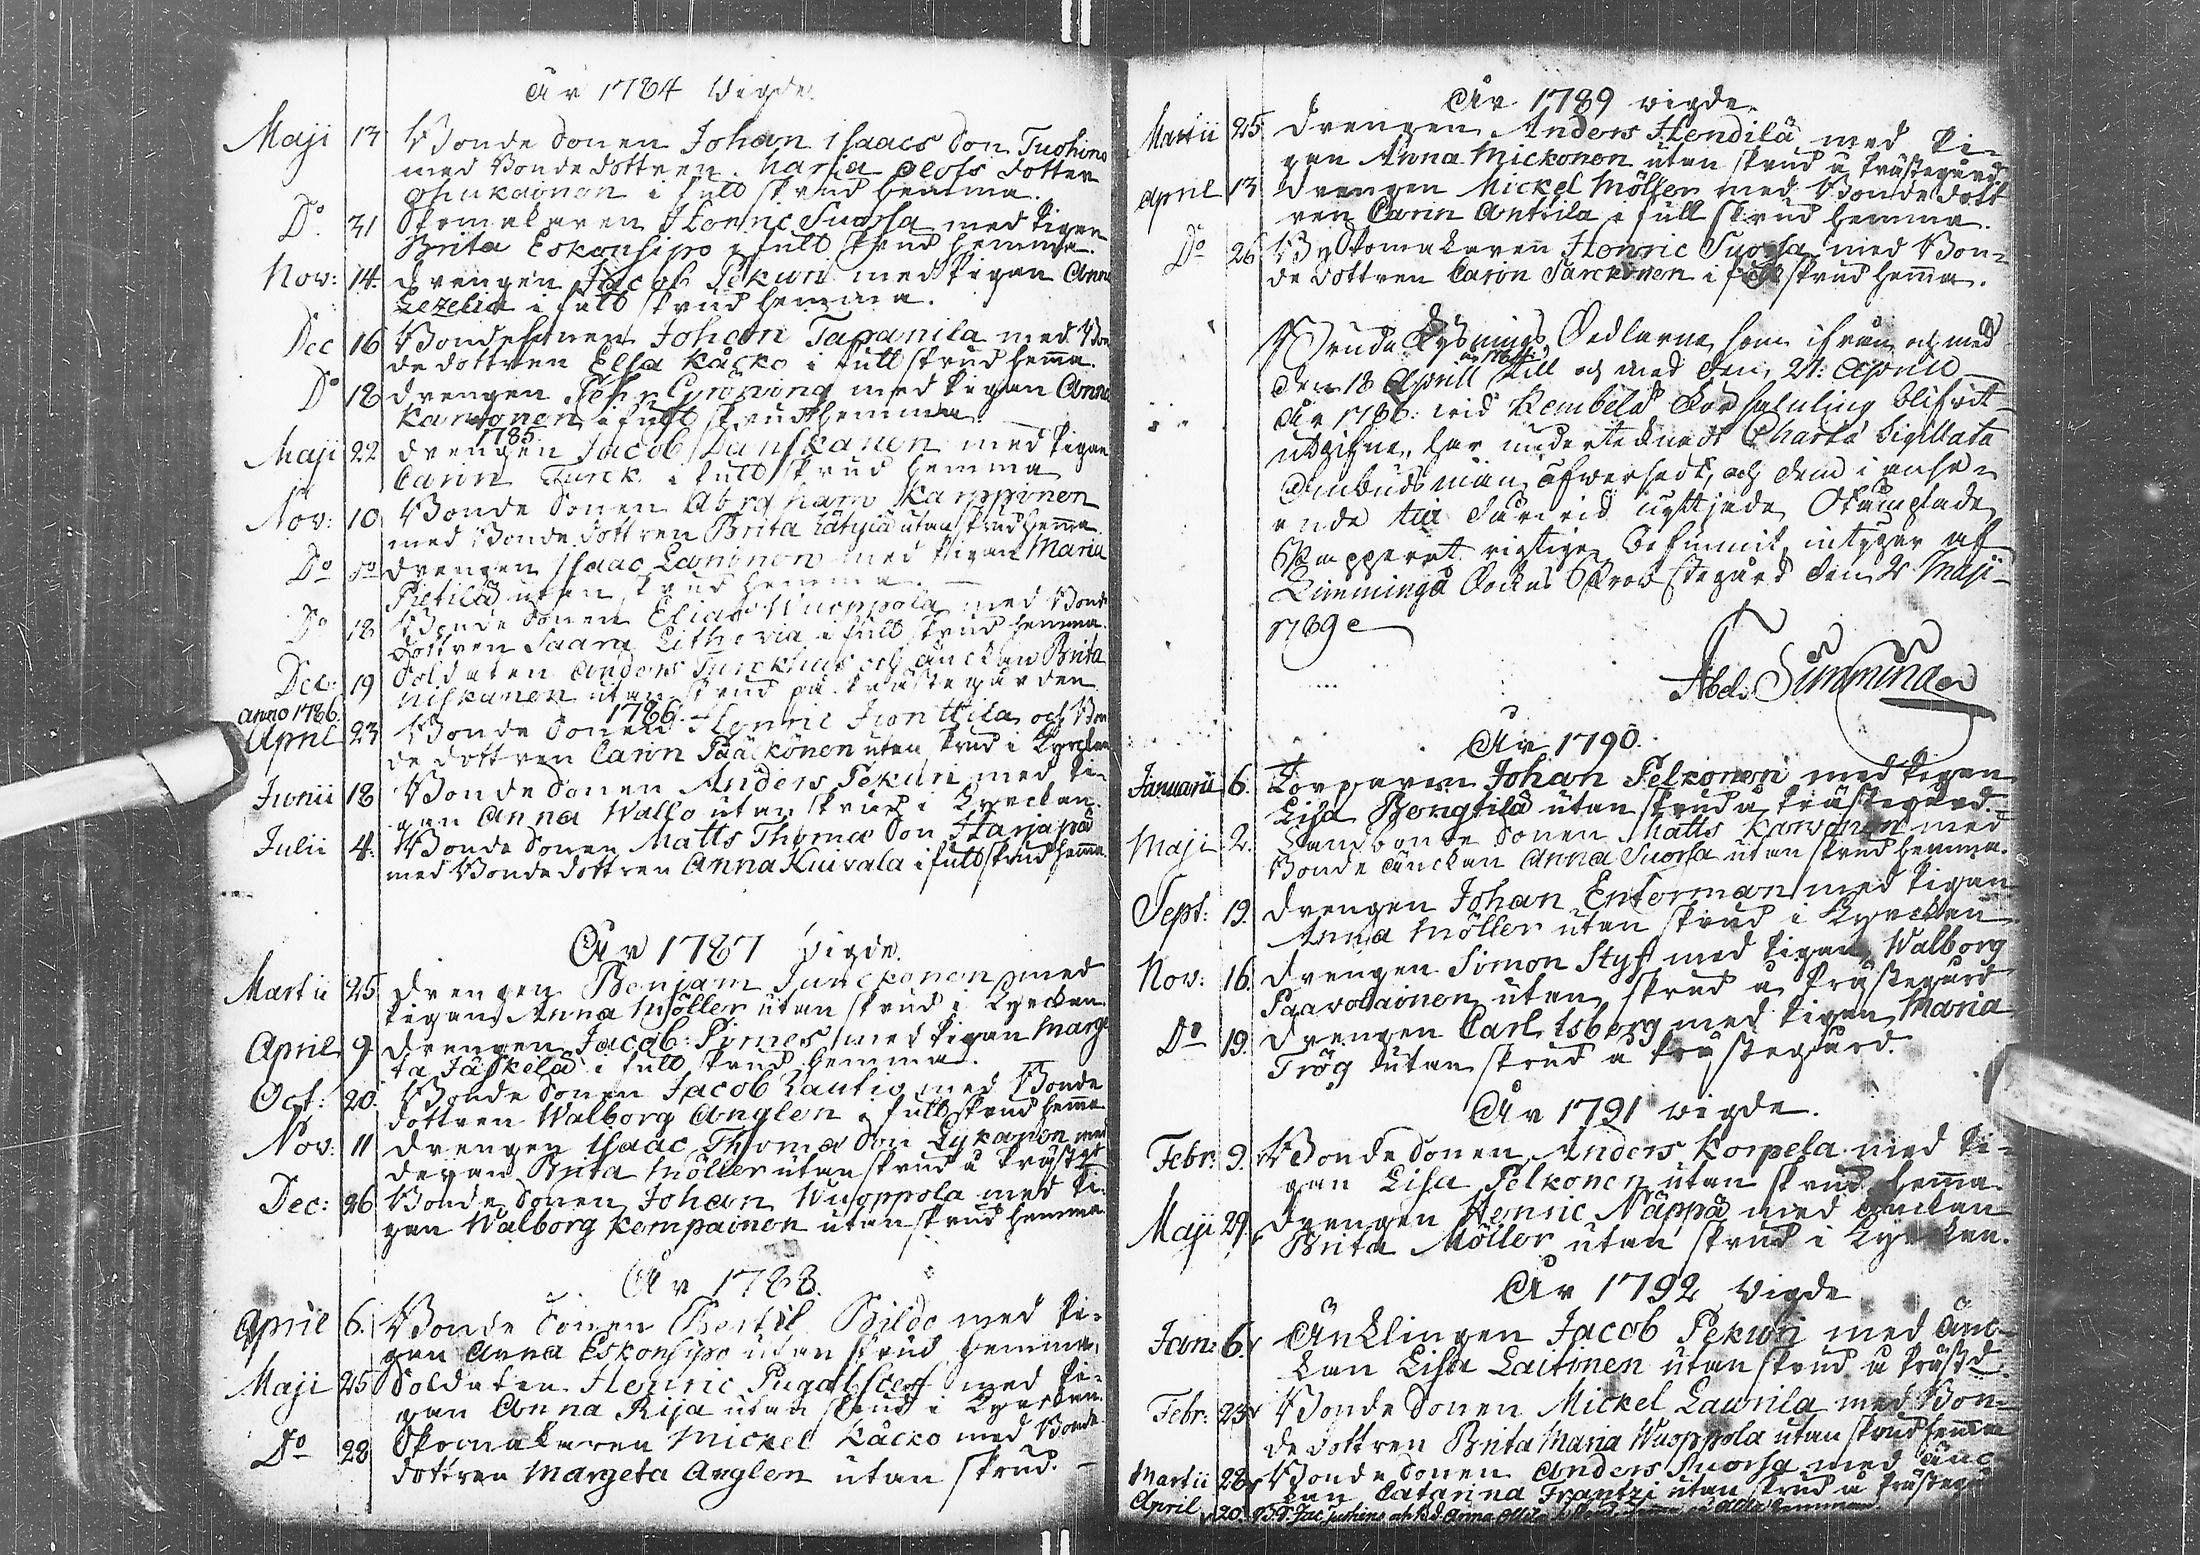 År 1784 Vigde.
Maji 13 Bonde Sonen Johan Isaacs Son Tuohino
med Bondedottren Maria Olofs dotter
i full skrud hemma.
Do. 31 Skomakaren Henric Suorsa med Pigan
Brita Eskonsipo i full skrud hemma.
Nov: 14. drengen Jacob Pekuri med Pigan Anna
Lezelia i full skrud hemma.
Dec 16 Bondesonen Johan Tapanila med Bon
de dottren Elsa Kåcko i full skrud hema.
Do 18 drengen Pehr med Pigan Anna
Karvonen i full skrud hemma
1785.
Maji 22 drengen Jacob Danskanen med Pigan
Carin Turck i full skrud hemma
Nov: 10 Bonde Sonen Abraham Karppinen
med Bonde dottren Brita utan skrud hema
Do drengen Isaac Laninen med Pigan Maria
Pietilä utan skrud hemma.
Do 18 Bonde Sonen Elias Wuoppola med Bonde
dottren Saara Lithovia i full skrud hemma.
Dec: 19 Soldaten Anders och änckan Brita
Niskanen utan skrud på Prästegården
1786.
anno 1786.
April 23 Bonde Sonen Henric Jonttila och Bon
de dottren Carin Pääckönen utan skrud i Kyrckan
Junii 18 Bonde Sonen Anders Pekuri med Pi-
gan Anna Wallo utan skrud i Kyrckan.
Julii 4. Bonde Sonen Matts Thomæ Son Harjapä
med Bondedottren Anna Kuivala i full skrud hema
År 1787 Vigde.
Martii 25 drengen Benjam Junckonen med
Pigan Anna Möller utan skrud i Kyrckan
April 9 drengen Jacob Pirnes med Pigan Marge
ta Jäskelä i full skrud hemma.
Oct: 20. Bonde Sonen Jacob Lautio med Bonde
dottren Walborg Anglen i full skrud hema
Nov: 11 drengen Isaac Thomæ Son Lykanen med
Brita Möller utan skrud å
Dec: 26 Bonde Sonen Johan Wuoppola med Pi-
gan Walborg Kempainen utan skrud hemma
År 1788.
April 6. Bonde Sonen Bertil Bildo med Pi-
gan Anna Eskonsipo utan skrud hemma,
Maji 25 Soldaten Henric med Pi-
gan Anna Rija utan skrud i Kyrckan.
Do 28 Skomakaren Mickel Kåcko med Bonde
dottren Margeta Anglen utan skrud.
År 1789 vigde.
Martii 25 drengen Anders Hendilä med Pi-
gan Anna Mickonen utan skrud å Prästegård
April 13 drengen Mickel Möller med Bonde dott
ren Carin Anttila i full skrud hemma.
Do 26 By Skomakaren Henric Suorsa med Bon-
de dottren Carin Särckönen i full skrud hema.
Brude Lysnings Sedlarne som ifrån och med
den 18 April till och med den 21: April
År 1786: vid Kembelä Församling blifvit
utgifne, har undertecknadt Charta Sigillata
Ombudsman öfversedt, och dem i anse-
ende till därvid nyttjade Stämplade
Papperet rigtige befunnit, intygar af
Limmingå Kyrckas Prostegård den 2 Maji
1789
Abel Simming
År 1790.
Januarii 6. Torparen Johan Pelkonen med Pigan
Lisa Bengtilä utan skrud å Prästegård.
Maji 2. Landbonde Sonen Matts Karvonen med
Bonde änckan Anna Suorsa utan skrud hemma.
Sept: 19. drengen Johan Enterman med Pigan
Anna Möller utan skrud i Kyrckan
Nov: 16. drengen Simon Styf med Pigan Walborg
Paavolainen utan skrud å Prästegård
Do 19. drengen Carl Isberg med Pigan Maria
Trög utan skrud å Prästegård.
År 1791 vigde.
Febr: 9. Bonde Sonen Anders Korpela med Pi-
gan Lisa Pelkonen utan skrud hema.
Maji 29. drengen Henric Näppä med änckan
Brita Möller utan skrud i Kyrckan.
År 1792 Vigde
Jan: 6. Ancklingen Jacob Pekuri med änc-
kan Lisa Laitinen utan skrud å Prästd.
Febr: 23 Bonde Sonen Mickel Laurila med Bon-
de dottren Brita Maria Wuoppola utan skrud hemma
Martii 28 Bonde Sonen Anders Suorsa med änc
kan Catarina Frantzi utan skrud å Prästegår
April 20.